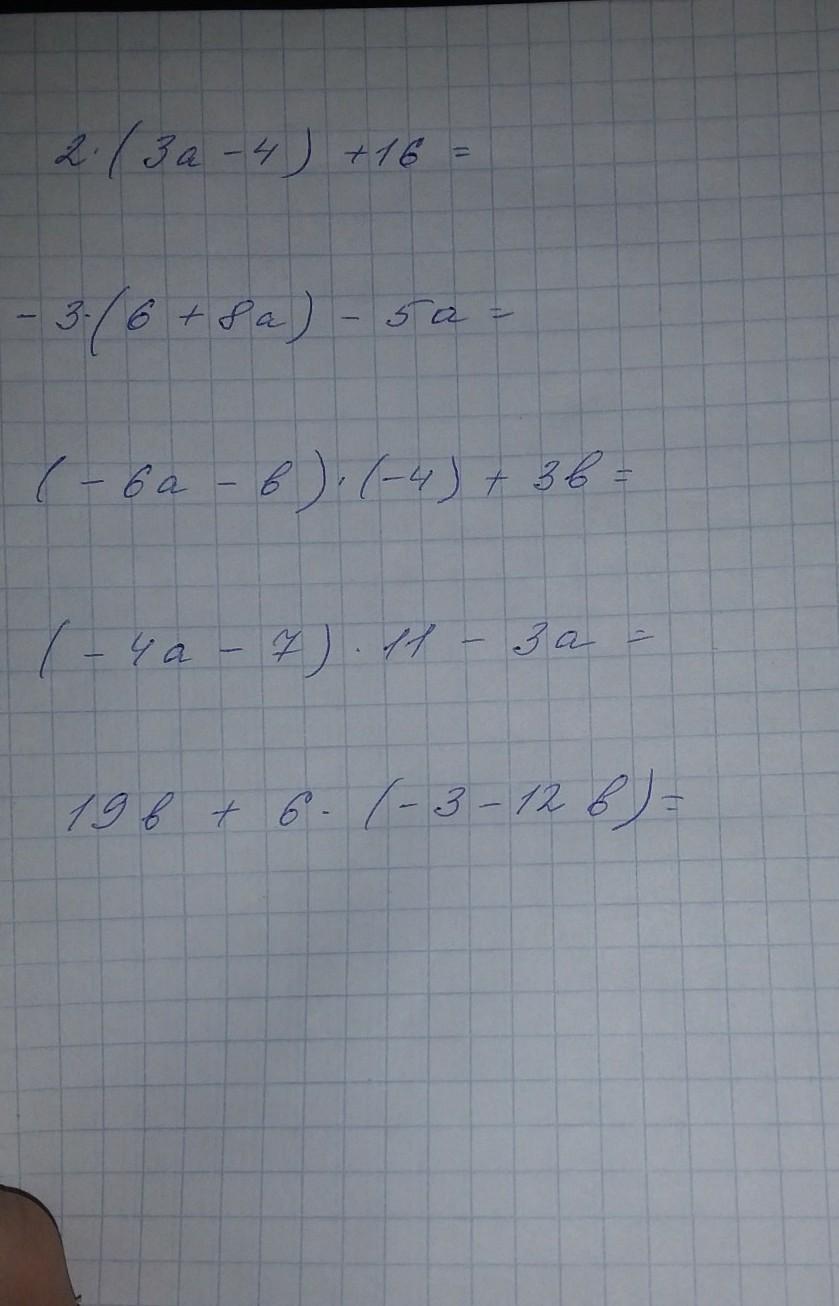 2·(3a-4)+16=
-3·(6+8a)-5a=
(-6a-b)·(-4)+3b=
(-4a-7)·11-3a=
19b+6·(-3-12b)=